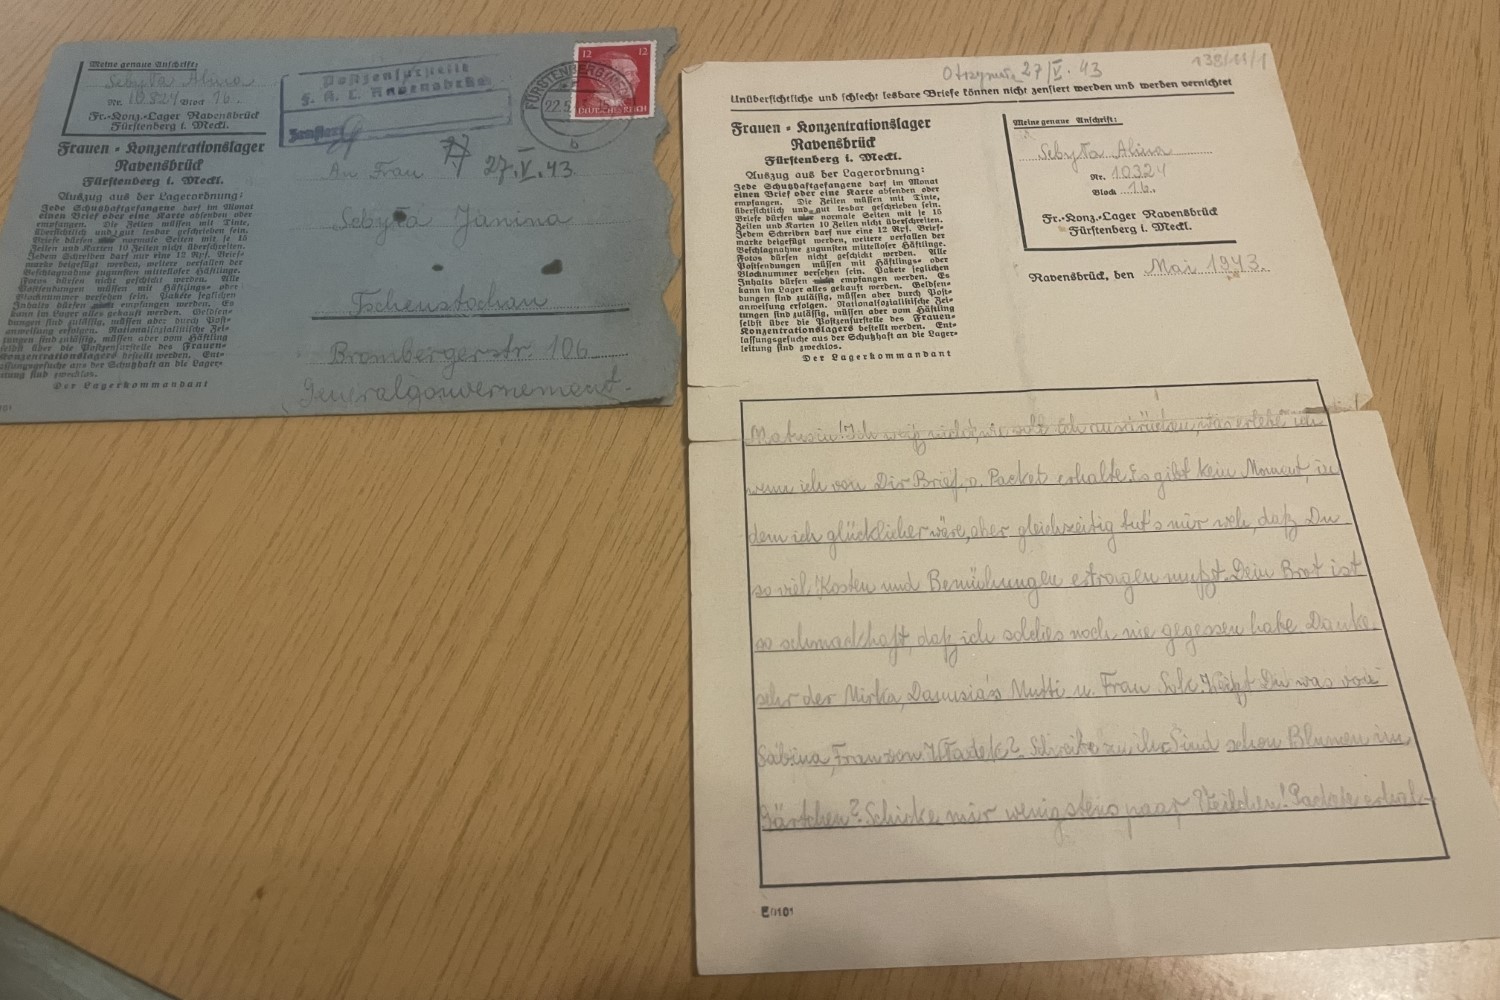 Meine genaue Anschrift:
Sebyła Alina
Nr. 10324 Block 16.
Fr.-Konz.-Lager Ravensbrück
Fürstenberg i. Meckl.
Frauen-Konzentrationslager
Ravensbrück
Fürstenberg i. Meckl.
Auszug aus der Lagerordnung:
Jede Schutzhaftgefangene darf im Monat
einen Brief oder eine Karte absenden oder
empfangen. Die Zeilen müssen mit Tinte,
übersichtlich und gut lesbar geschrieben sein.
Briefe dürfen normale Seiten mit je 15
Zeilen und Karten 10 Zeilen nicht überschreiten.
Jedem Schreiben darf nur eine 12 Rpf. Brief-
marke beigefügt werden, weitere verfallen der
Beschlagnahme zugunsten mittelloser Häftlinge.
Fotos dürfen nicht geschickt werden. Alle
Postsendungen müssen mit Häftlings- oder
Blocknummer versehen sein. Pakete jeglichen
Inhalts dürfen empfangen werden. Es
kann im Lager alles gekauft werden. Geldsen-
dungen sind zulässig, müssen aber durch Post-
anweisung erfolgen. Nationalsozialistische Zei-
tungen sind zulässig, müssen aber vom Häftling
selbst über die Postzensurstelle des Frauen-
Konzentrationslagers bestellt werden. Ent-
lassungsgesuche aus der Schutzhaft an die Lager-
leitung sind zwecklos.
Der Lagerkommandant
Postzensurstelle
F. K. L. Ravensbrück
Zensiert
12 12
DEUTSCHES REICH
FÜRSTENBERG (MECKL)
22.5.
b
An Frau 27.V.43.
Sebyła Janina
Tschenstochau
Brombergerstr. 106
Generalgouvernement.
Otrzymała 27/V. 43
138/11/1
Unübersichtliche und schlecht lesbare Briefe können nicht zensiert werden und werden vernichtet
Frauen-Konzentrationslager
Ravensbrück
Fürstenberg i. Meckl.
Auszug aus der Lagerordnung:
Jede Schutzhaftgefangene darf im Monat
einen Brief oder eine Karte absenden oder
empfangen. Die Zeilen müssen mit Tinte,
übersichtlich und gut lesbar geschrieben sein.
Briefe dürfen normale Seiten mit je 15
Zeilen und Karten 10 Zeilen nicht überschreiten.
Jedem Schreiben darf nur eine 12 Rpf. Brief-
marke beigefügt werden, weitere verfallen der
Beschlagnahme zugunsten mittelloser Häftlinge.
Fotos dürfen nicht geschickt werden. Alle
Postsendungen müssen mit Häftlings- oder
Blocknummer versehen sein. Pakete jeglichen
Inhalts dürfen empfangen werden. Es
kann im Lager alles gekauft werden. Geldsen-
dungen sind zulässig, müssen aber durch Post-
anweisung erfolgen. Nationalsozialistische Zei-
tungen sind zulässig, müssen aber vom Häftling
selbst über die Postzensurstelle des Frauen-
Konzentrationslagers bestellt werden. Ent-
lassungsgesuche aus der Schutzhaft an die Lager-
leitung sind zwecklos.
Der Lagerkommandant
Meine genaue Anschrift:
Sebyła Alina
Nr. 10324
Block 16.
Fr.-Konz.-Lager Ravensbrück
Fürstenberg i. Meckl.
Ravensbrück, den Mai 1943.
Matusiu! Ich weiß nicht, wie soll ich ausdrücken, was erlebe ich
wenn ich von Dir Brief u. Packet erhalte. Es gibt kein Moment, in
dem ich glücklicher wäre, aber gleichzeitig tut's mir weh, daß Du
so viel Kosten und Bemühungen ertragen mußt. Dein Brot ist
so schmackhaft, daß ich solches noch nie gegessen habe. Danke
sehr der Mirka, Danusia's Mutti u. Frau Weißt Du was von
Sabina, Franz von Władek? Schreibe zu ihr. Sind schon Blumen im
Gärtchen? Schicke mir wenigstens paar Veilchen! Packete erhal-
E/0101